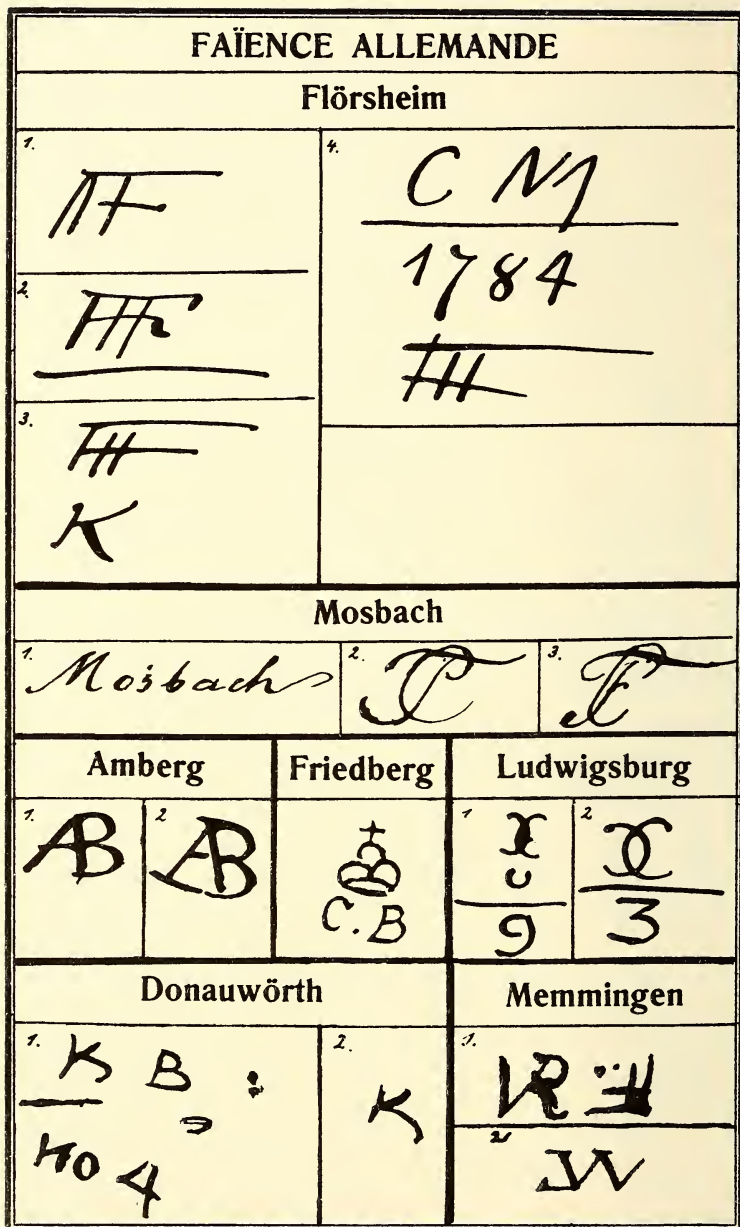 FAÏENCE ALLEMANDE
Flörsheim
1.
2.
3.
K
4.
C M
1784
Mosbach
1. Mosbach
2.
3.
Amberg
1. AB
2 AB
Friedberg
C.B
Ludwigsburg
1
9
2
3
Donauwörth
1. K B :
No 4
2.
K
Memmingen
1.
2.